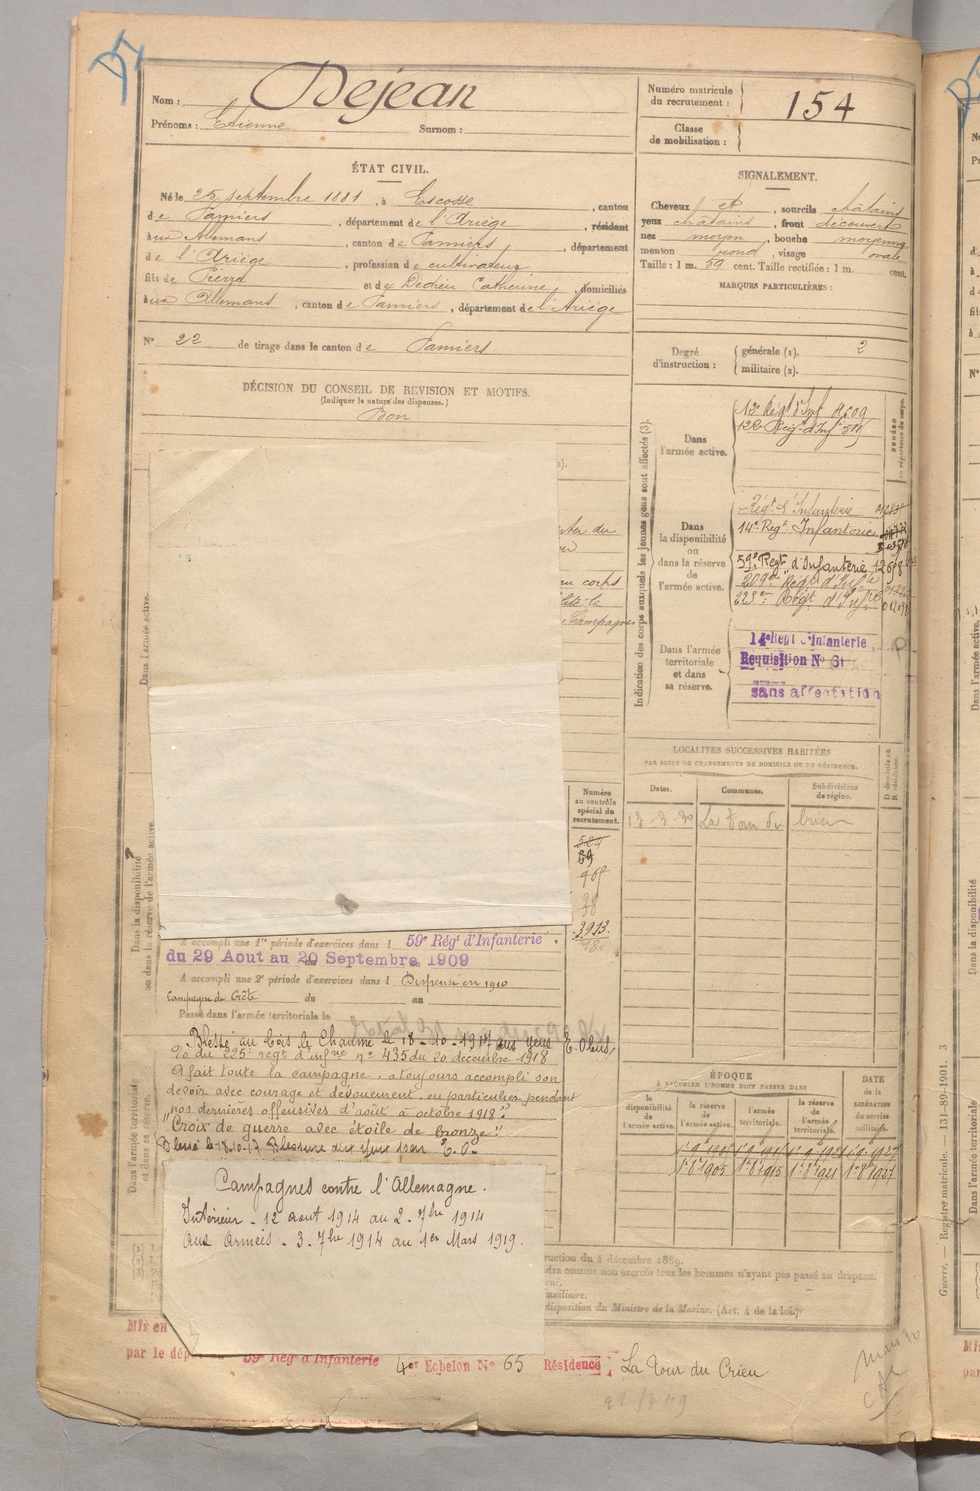 Nom : Dejean
Prénoms : Etienne Surnom :
Numéro matricule du recrutement : 154
Classe de mobilisation :
ÉTAT CIVIL.
Né le 25 septembre 1881, à Escosse, canton
de Pamiers, département de l'Ariège, résident
aux Allemans, canton de Pamiers, département
de l'Ariège, profession de cultivateur
fils de Pierre et de Dedieu Catherine, domiciliés
aux Allemans, canton de Pamiers, département de l'Ariège
N° 22 de tirage dans le canton de Pamiers
DÉCISION DU CONSEIL DE REVISION ET MOTIFS.
(Indiquer la nature des dispenses.)
Bon
SIGNALEMENT.
Cheveux et, sourcils châtains
yeux châtains, front découvert
nez moyen, bouche moyenne
menton rond, visage ovale
Taille : 1 m. 59 cent. Taille rectifiée : 1 m. cent.
MARQUES PARTICULIÈRES :
Degré d'instruction : générale (1). 2
militaire (2).
Indication des corps auxquels les jeunes gens sont affectés (3).
Dans l'armée active.
122 Régt d'Inf
NUMÉRO
Dans la disponibilité ou dans la réserve de l'armée active.
Régt d'Infanterie
14e Regt Infanterie
59e Regt d'Infanterie
209e Régt d'Inf
223e Régt d'Inf
Dans l'armée territoriale et dans sa réserve.
14e Regt d'infanterie
Requisition No 61
sans affectation
corps
Campagne
Dans l'armée active.
Dans la disponibilité
ou dans la réserve de l'armée active.
Numéro au contrôle spécial du recrutement.
69
38
3913
LOCALITÉS SUCCESSIVES HABITÉES
PAR SUITE DE CHANGEMENTS DE DOMICILE OU DE RÉSIDENCE.
Dates. Communes. Subdivisions de région.
D domicile ou R résidence.
La Tour du Crieu
A accompli une 1re période d'exercices dans l 59e Régt d'Infanterie.
du 29 Aout au 20 Septembre 1909
A accompli une 2e période d'exercices dans l Dispensé en 1910
Campagne de Crète du au
Passé dans l'armée territoriale le
Blessé au bois le Chaume le 18-10-1917 aux yeux E. Obus
Oo du 225e regt d'infrie no 435 du 20 decembre 1918
A fait toute la campagne, a toujours accompli son
devoir avec courage et dévouement, en particulier pendant
"nos dernières offensives d'août à octobre 1918"
Croix de guerre avec étoile de bronze"
Blessé le 18.10.17 Blessure aux yeux par E. O.
Dans l'armée territoriale
et dans sa réserve.
Campagnes contre l'Allemagne.
Intérieur - 12 aout 1914 au 2 - 7bre 1914
Aux Armées - 3 - 7bre 1914 au 1er Mars 1919.
ÉPOQUE
À LAQUELLE L'HOMME DOIT PASSER DANS
la disponibilité de l'armée active. la réserve de l'armée active. l'armée territoriale. la réserve de l'armée territoriale.
DATE de la LIBÉRATION du service militaire.
1er 8bre 1905 1er 8bre 1915 1er 8bre 1921 1er 8bre 1927
ruction du 4 décembre 1889.
dra comme non exercés tous les hommes n'ayant pas passé au drapeau.
disposition du Ministre de la Marine. (Art. 4 de la loi.)
Mis en
par le dépôt 59e Régt d'Infanterie 4er Echelon No 65 Résidence : La Tour du Crieu
Guerre. — Registre matricule. — 131-89-1901. 3